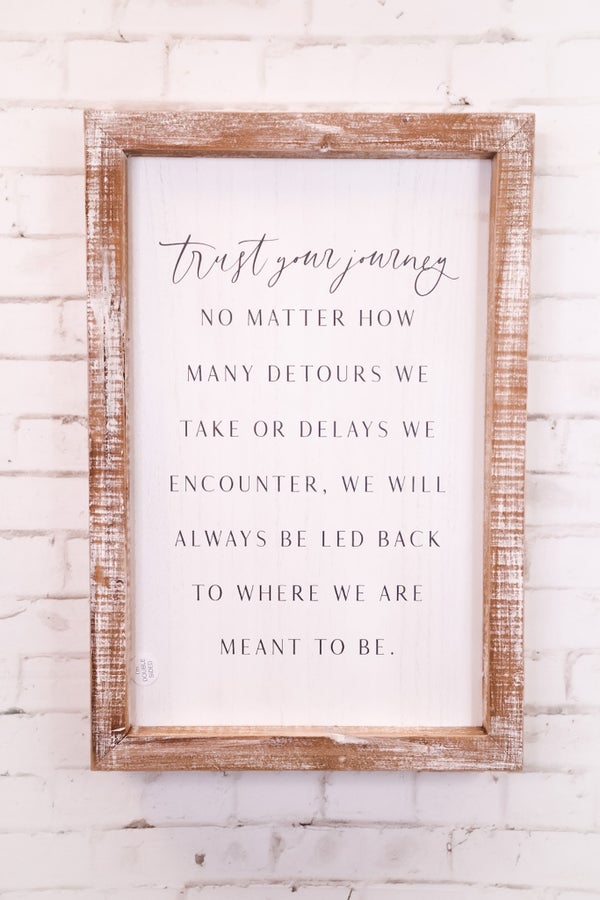 trust your journey
NO MATTER HOW
MANY DETOURS WE
TAKE OR DELAYS WE
ENCOUNTER, WE WILL
ALWAYS BE LED BACK
TO WHERE WE ARE
MEANT TO BE.
DOUBLE
SIDED